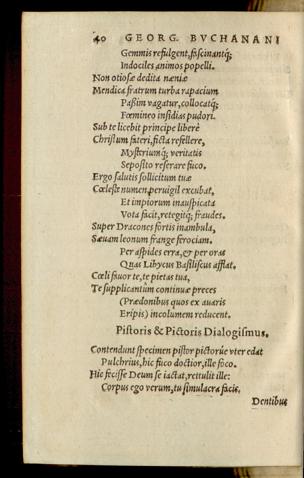 40 GEORG. BVCHANANI
Gemmis refulgent, fascinantq́;
Indociles animos popelli.
Non otiosæ dedita næniæ
Mendica fratrum turba rapacium
Paßim vagatur, collocatq́;
Fœmineo insidias pudori.
Sub te licebit principe liberè
Christum fateri, ficta refellere,
Mysteriumq́; veritatis
Seposito reserare fuco.
Ergo salutis sollicitum tuæ
Cœleste numen, peruigil excubat,
Et impiorum inauspicata
Vota facit, retegitq́; fraudes.
Super Dracones fortis inambula,
Sæuam leonum frange ferociam.
Per aspides erra, & per oras
Quas Libycus Basiliscus afflat.
Cœli fauor te, te pietas tua,
Te supplicantum continuæ preces
(Prædonibus quos ex auaris
Eripis) incolumem reducent.
Pistoris & Pictoris Dialogismus.
Contendunt specimen pistor pictorúe vter edat
Pulchrius, hic fuco doctior, ille foco.
Hic fecisse Deum se iactat, rettulit ille:
Corpus ego verum, tu simulacra facis.
Dentibus